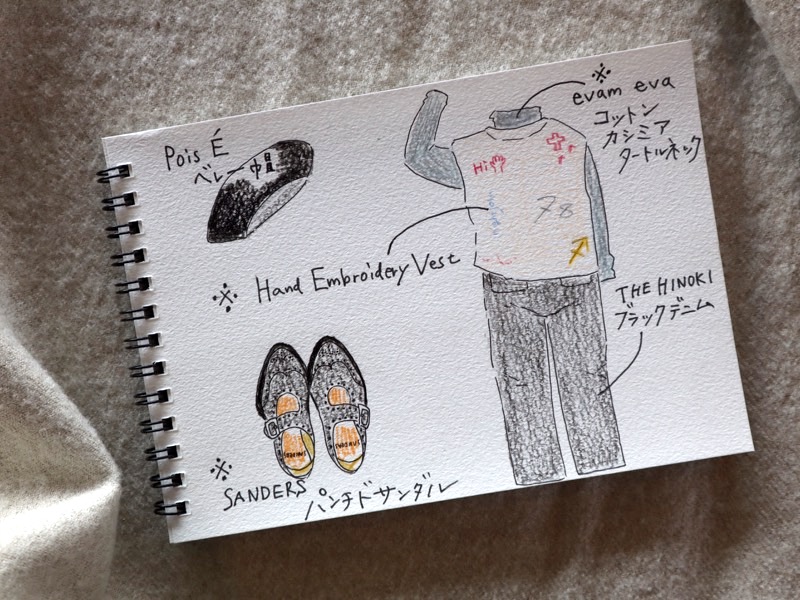 Pois É
ベレー帽
※
evam eva
コットン
カシミア
タートルネック
Hi
78
※ Hand Embroidery Vest
THE HINOKI
ブラックデニム
※
SANDERS パンチドサンダル